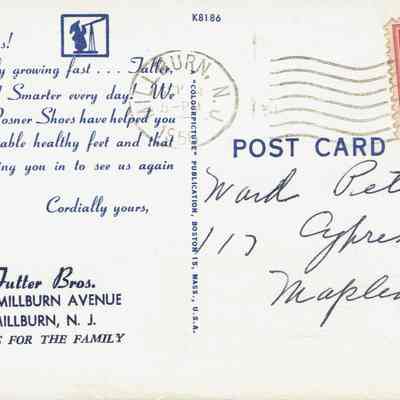 K8186
s!
y growing fast . . . Taller,
Smarter every day! We
Posner Shoes have helped you
able healthy feet and that
ing you in to see us again
Cordially yours,
Futter Bros.
MILLBURN AVENUE
MILLBURN, N. J.
FOR THE FAMILY
A "COLOURPICTURE" PUBLICATION, BOSTON 15, MASS., U.S.A.
MILLBURN, N.J.
POST CARD
Ward Pet
117 Cypres
Maplew